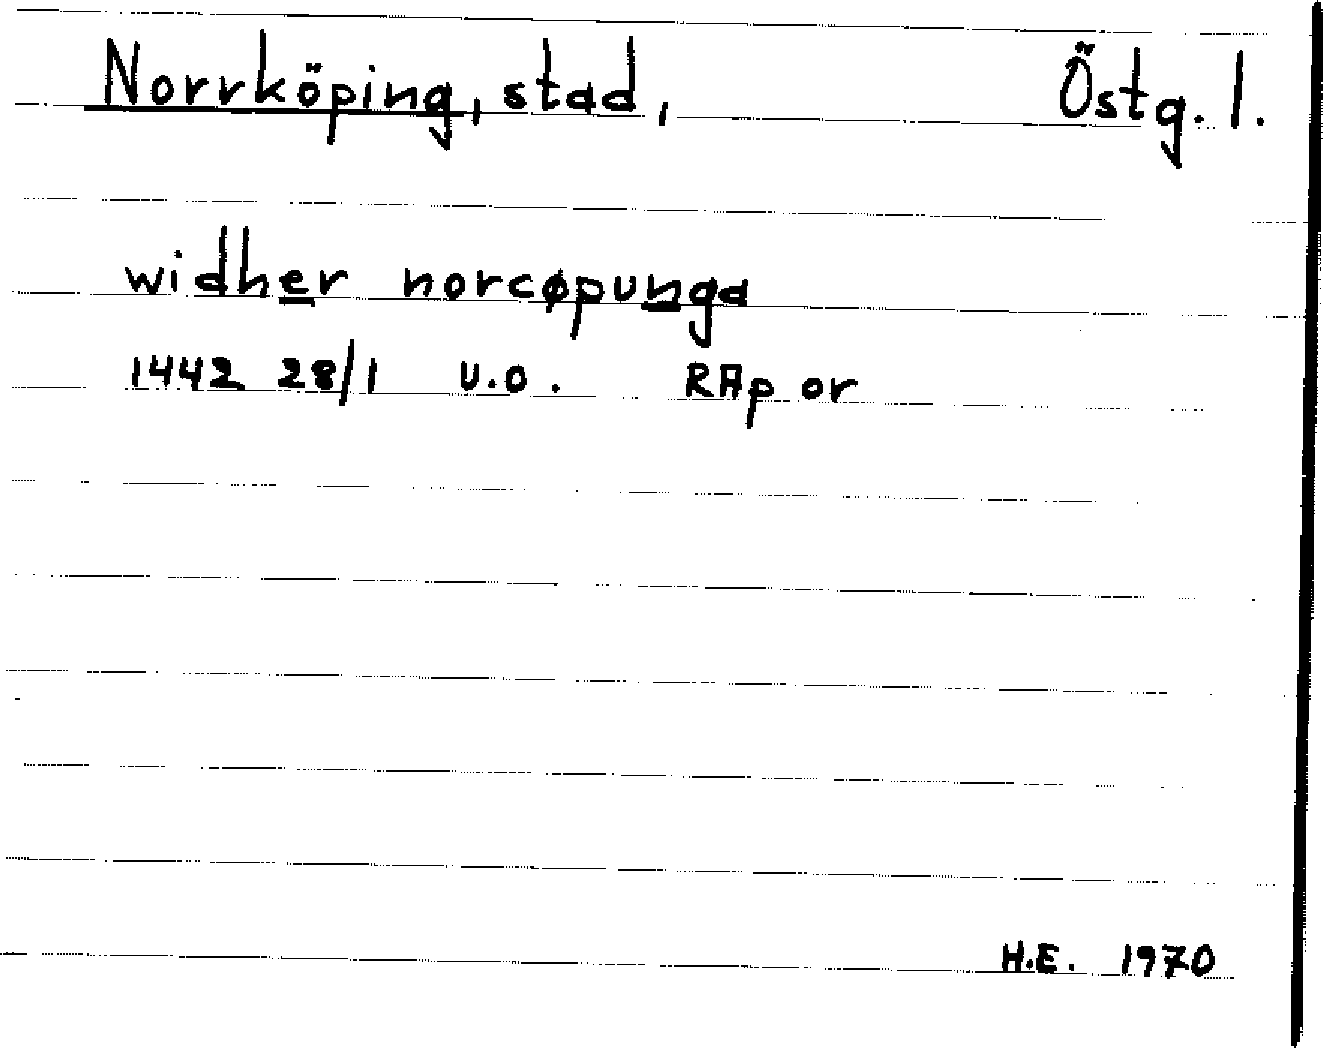 Norrköping, stad, Östg. l.
widher norcøpunga
1442 28/1 u.o. RAp or
H.E. 1970